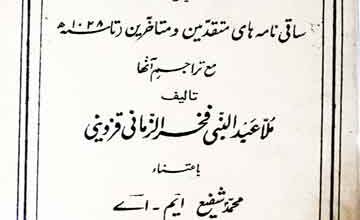 ساقی نامه های متقدمین و متاخرین (تا سنه ۱۰۲۸ ھ
مع تراجم آنها
تالیف
ملا عبد النبی فخر الزمانی قزوینی
باعتناء
محمد شفیع ایم - اے